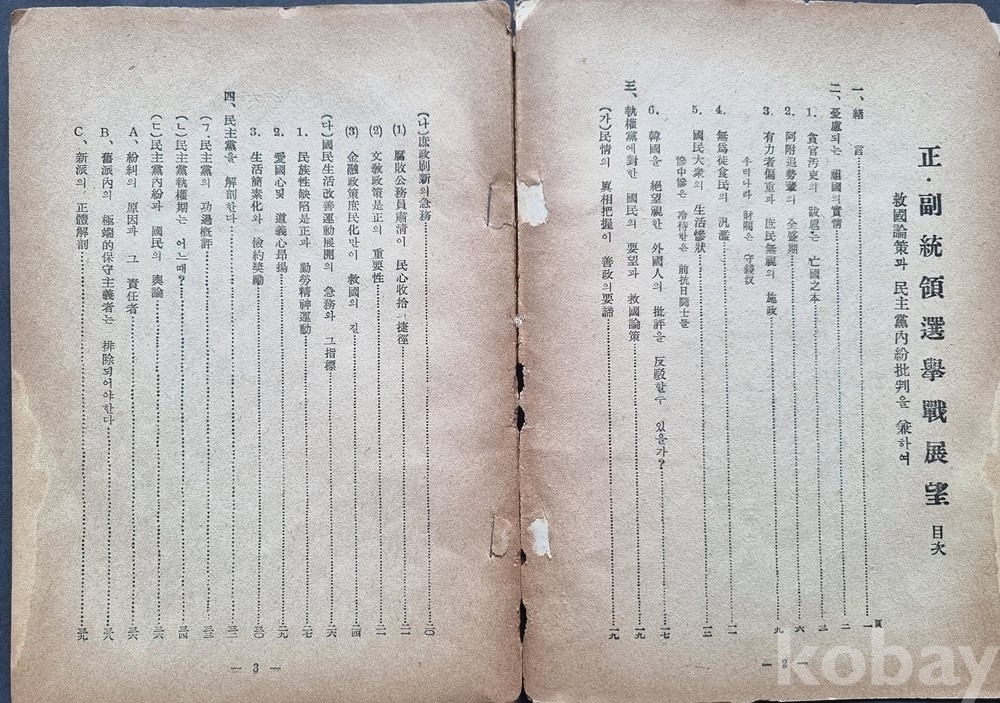 正·副統領選擧戰展望 目次
救國論策과 民主黨內紛批判을 兼하여
頁
一、緖言 一
二、憂慮되는 祖國의 實情 二
1. 貪官汚吏의 跋扈는 亡國之本 三
2. 阿附追勢輩의 全盛期 六
3. 有力者偏重과 庶民無視의 施政 九
우리나라 財閥은 守錢奴
4. 無爲徒食民의 汎濫 一一
5. 國民大衆의 生活慘狀 一二
慘中慘은 冷待받은 前抗日鬪士들
6. 韓國을 絕望視한 外國人의 批評을 反駁할수 있을가? 一七
三、執權黨에對한 國民의 要望과 救國論策 一九
(가)民情의 眞相把握이 善政의要諦 一九
— 2 —
(나)庶政刷新의急務 二〇
(1) 腐敗公務員肅淸이 民心收拾의捷徑 二一
(2) 文敎政策是正의 重要性 二二
(3) 金融政策庶民化만이 救國의 길 二四
(다)國民生活改善運動展開의 急務와 그指標 二六
1. 民族性缺陷是正과 勤勞精神運動 二七
2. 愛國心및 道義心昂揚 二九
3. 生活簡素化와 儉約奬勵 三〇
四、民主黨을 解剖한다 三二
(ㄱ·民主黨의 功過槪評 三三
(ㄴ)民主黨執權期는 어느때? 三四
(ㄷ)民主黨內紛과 國民의 輿論 三六
A、紛糾의 原因과 그 責任者 三六
B、舊派內의 極端的保守主義者는 排除되어야한다 三八
C、新派의 正體解剖 三九
— 3 —
kobay